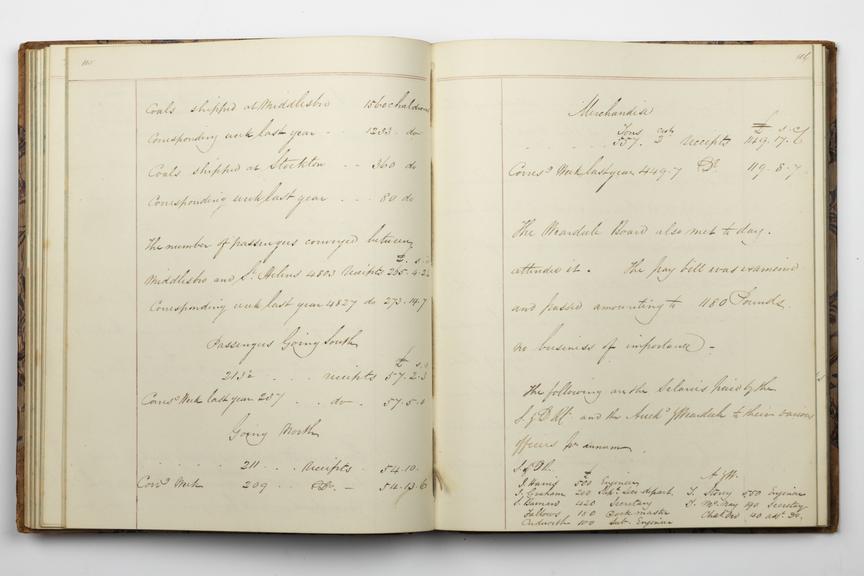 Coals shipped at Middlesbro 1560 chaldrons
Corresponding week last year - - 1233 - do
Coals shipped at Stockton - - 360 do
Corresponding week last year - - - 80 do
The number of passengers conveyed between
£. s.
Middlesbro and St Helens 4803 receipts 265.4.2
Corresponding week last year 4827 do 273.14.7
Passengers Going South
£ s.
receipts 57.2.3
Corresd Week last year 237 - - do - 57.5.0
Going North
211 - - Receipts - 54.10.
Corrd Week 209 - - Do. - 54.13.6
Merchandise
Tons cwts £ s. d
557. 3 receipts 1149.17.6
Corresd Week last year 449.7 Do. 119.8.7
The Weardale Board also met to day.
attended it. The pay bill was examined
and passed amounting to 1180 Pounds.
no business of importance -
The following are the Salaries paid by the
S & D Rl. and the Auckd & Weardale to their various
officers per annum
S & D R. £ A & W.
J. Harris 500 Engineer
J. Graham 200 Supt. Loco depart. T. Storey 550 Engineer
S. Barnard 420 Secretary T. McNay 190 Secretary
Fallows 150 Dock master 40 asst. Do.
Cudworth 100 Sub. Engineer